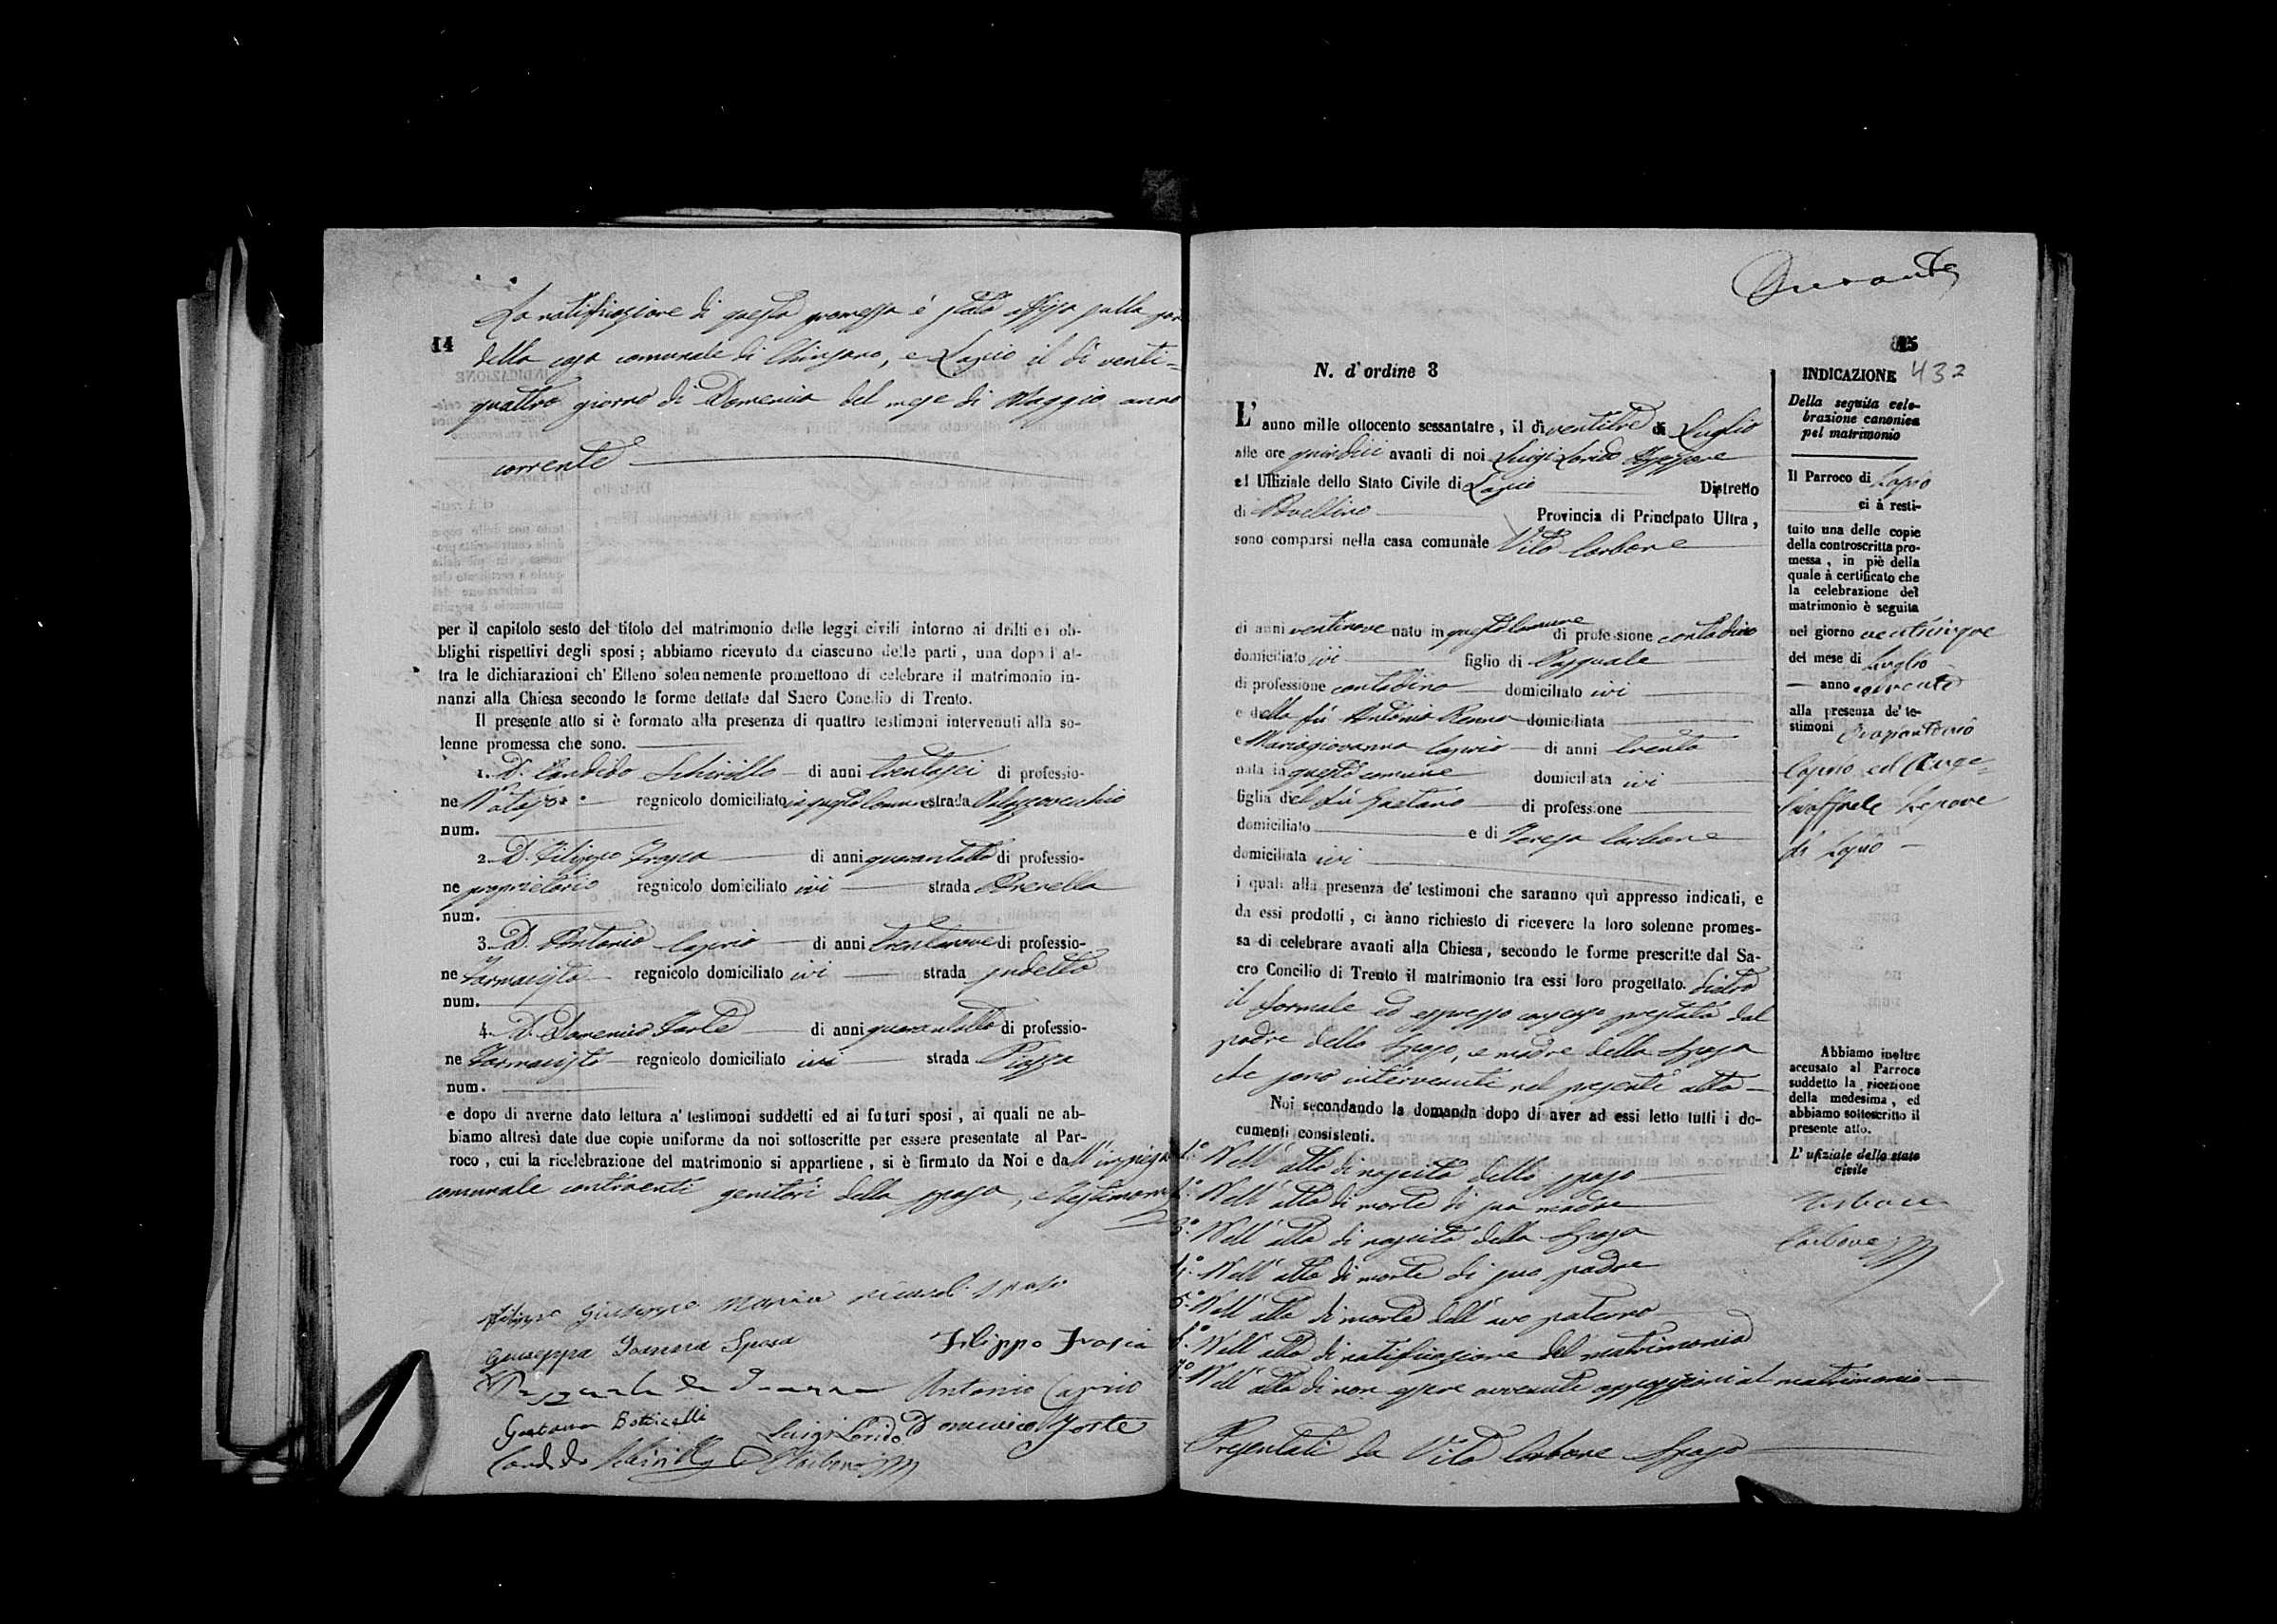 La notificazione di questa promessa è stata affissa sulla por
14
della casa comunale di Chiusano, e Lapio il dì venti=
quattro giorno di Domenica del mese di Maggio anno
corrente
per il capitolo sesto del titolo del matrimonio delle leggi civili intorno ai dritti ed ob-
blighi rispettivi degli sposi; abbiamo ricevuto da ciascuno delle parti, una dopo l'al-
tra le dichiarazioni ch' Elleno solennemente promettono di celebrare il matrimonio in-
nanzi alla Chiesa secondo le forme dettate dal Sacro Concilio di Trento.
Il presente atto si è formato alla presenza di quattro testimoni intervenuti alla so-
lenne promessa che sono.
1. D. Candido Schirillo di anni trentasei di professio-
ne Notajo regnicolo domiciliato in questo Comune strada Palazzovecchio
num.
2. D. Filippo Frasca di anni quarantotto di professio-
ne proprietario regnicolo domiciliato ivi strada
num.
3. D. Antonio Caprio di anni trentanove di professio-
ne Farmacista regnicolo domiciliato ivi strada sudetta
num.
4. D. Domenico Forte di anni quarantotto di professio-
ne Farmacista regnicolo domiciliato ivi strada Piazza
num.
e dopo di averne dato lettura a' testimoni suddetti ed ai futuri sposi, ai quali ne ab-
biamo altresì date due copie uniforme da noi sottoscritte per essere presentate al Par-
roco, cui la ricelebrazione del matrimonio si appartiene, si è firmato da Noi e dall'impiegato
comunale contraenti genitori della sposa, e testimoni
Filippo Giuseppe Maria sposo
Giuseppa Sposa Filippo Frasca
Antonio Caprio
Gaetana Botticelli Luigi Lorido Domenico Forte
Candido Schirillo Carbone
Durante
15
N. d'ordine 8
INDICAZIONE 432
Della seguita cele-
brazione canonica
pel matrimonio
L' anno mille ottocento sessantatre, il dì ventitre di Luglio
alle ore quindici avanti di noi Luigi Lorido Assessore
ed Uffiziale dello Stato Civile di Lapio Distretto
di Avellino Provincia di Principato Ultra,
sono comparsi nella casa comunale Vito Carbone
di anni ventinove nato in questo Comune di professione contadino
domiciliato ivi figlio di Pasquale
di professione contadino domiciliato ivi
e della fu Antonia Renna domiciliata
e Mariagiovanna Caprio di anni trenta
nata in questo comune domiciliata ivi
figlia del fu Gaetano di professione
domiciliato e di Teresa Carbone
domiciliata ivi
i quali alla presenza de' testimoni che saranno quì appresso indicati, e
da essi prodotti, ci ànno richiesto di ricevere la loro solenne promes-
sa di celebrare avanti alla Chiesa, secondo le forme prescritte dal Sa-
cro Concilio di Trento il matrimonio tra essi loro progettato. dietro
il formale ed espresso consenso prestato dal
padre dello sposo, e madre della sposa
che sono intervenuti nel presente atto
Noi secondando la domanda dopo di aver ad essi letto tutti i do-
cumenti consistenti.
1.º Nell' atto di nascita dello sposo
2.º Nell' atto di morte di sua madre
3.º Nell' atto di nascita della sposa
4.º Nell' atto di morte di suo padre
5.º Nell' atto di morte dell' avo paterno
6.º Nell' atto di notificazione del matrimonio
7.º Nell' atto di non essere avvenute opposizioni al matrimonio
Presentati da Vito Carbone Sposo
Il Parroco di Lapio
ci à resti-
tuito una delle copie
della controscritta pro-
messa, in piè della
quale à certificato che
la celebrazione del
matrimonio è seguita
nel giorno venticinque
del mese di Luglio
anno corrente
alla presenza de' te-
stimoni
Caprio ed Ange-
loraffaele Lepore
di Lapio
Abbiamo inoltre
accusato al Parroco
suddetto la ricezione
della medesima, ed
abbiamo sottoscritto il
presente atto.
L'ufiziale dello stato
civile
Carbone